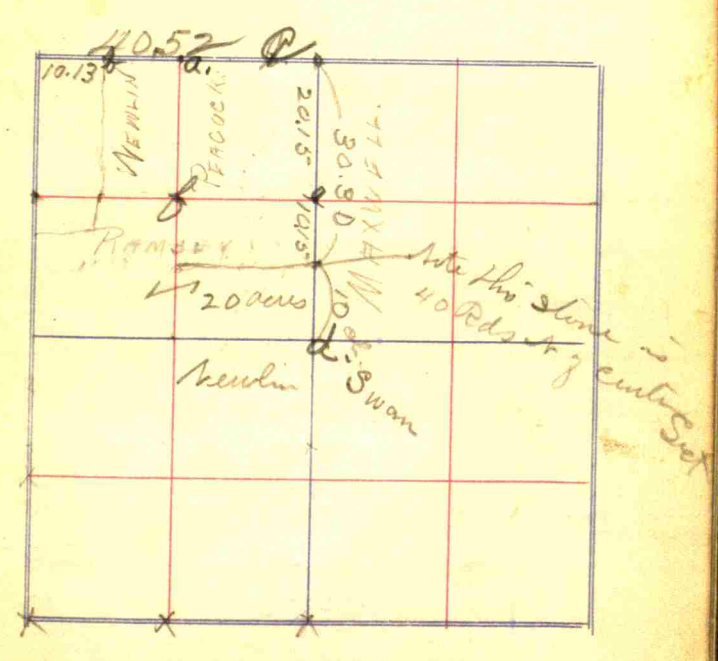 40.52
10.13 b a. C
NEWLIN
PEACOCK
20.15
30.30
MAXWELL
f e
10.15
RAMSEY
20 acres
10
d.
Swan
Newlin
Note this stone is
40 Rds N of center
Sect